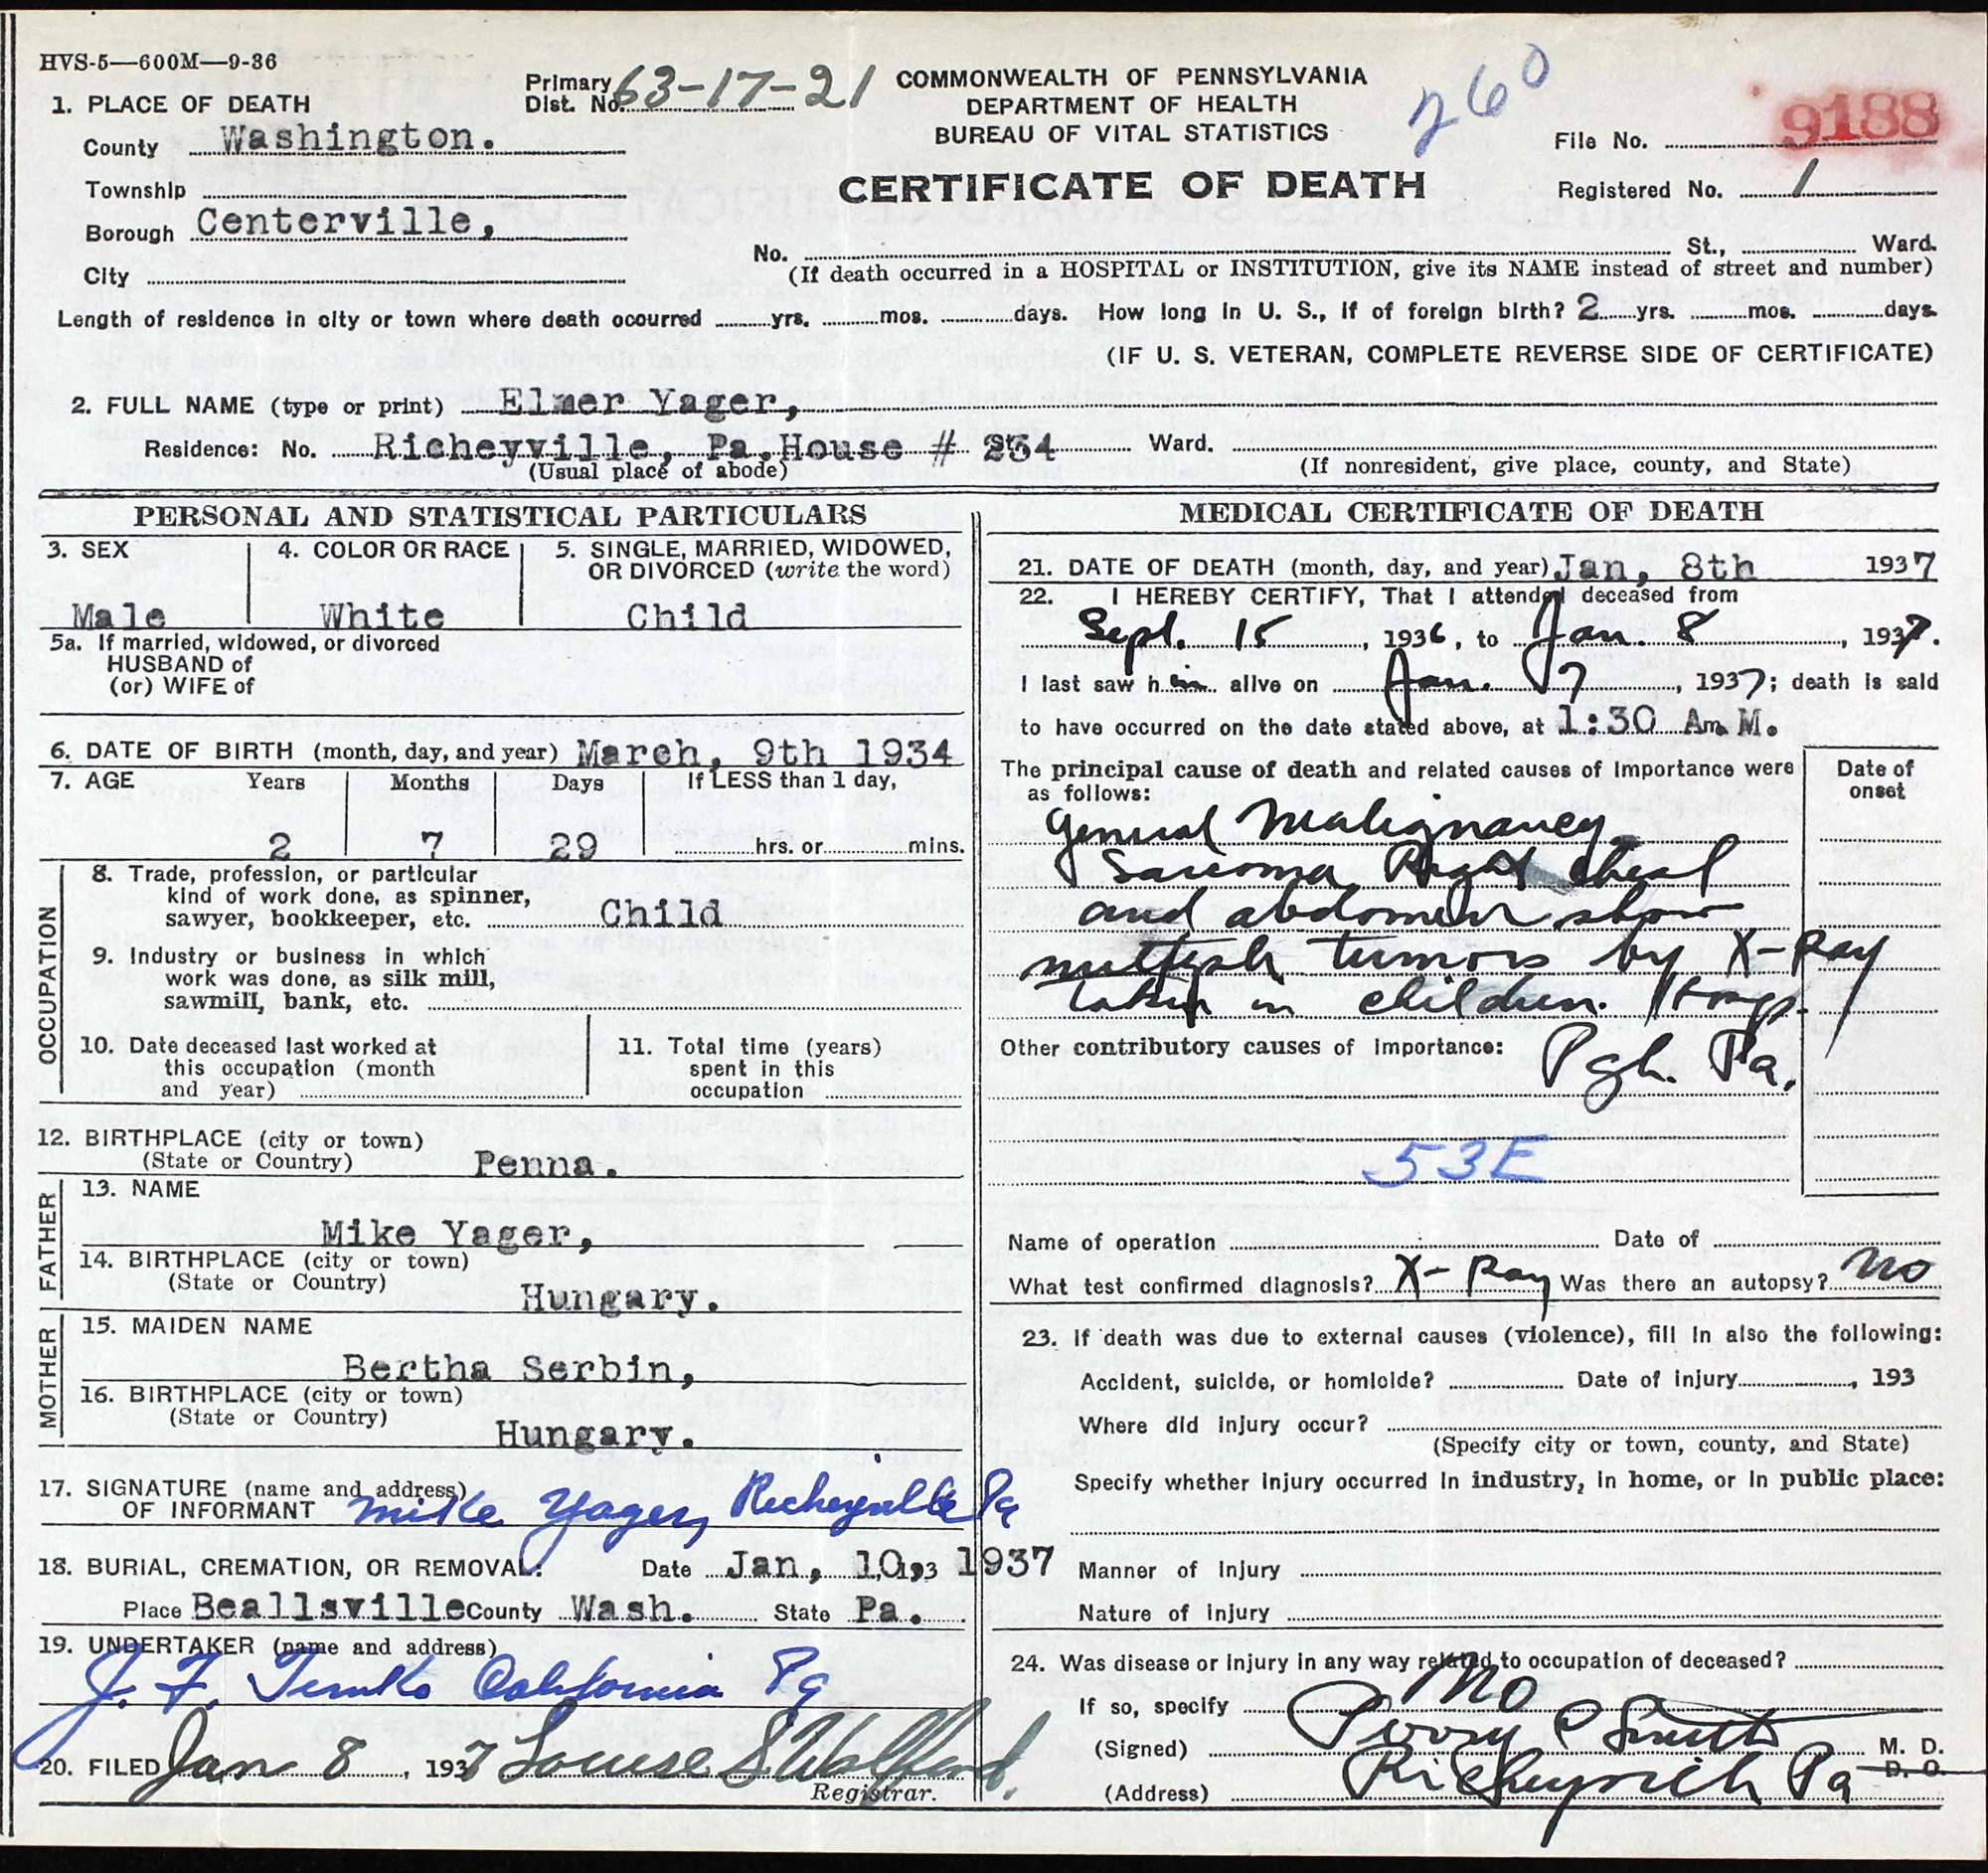 HVS-5—600M—9-36
Primary Dist. No. 63-17-21
COMMONWEALTH OF PENNSYLVANIA
DEPARTMENT OF HEALTH
BUREAU OF VITAL STATISTICS
260
File No. 9188
CERTIFICATE OF DEATH
Registered No. 1
1. PLACE OF DEATH
County Washington.
Township
Borough Centerville,
City
No. St., Ward.
(If death occurred in a HOSPITAL or INSTITUTION, give its NAME instead of street and number)
Length of residence in city or town where death occurred yrs. mos. days. How long in U. S., if of foreign birth? 2 yrs. mos. days.
(IF U. S. VETERAN, COMPLETE REVERSE SIDE OF CERTIFICATE)
2. FULL NAME (type or print) Elmer Yager,
Residence: No. Richeyville, Pa. House # Ward.
(Usual place of abode) (If nonresident, give place, county, and State)
PERSONAL AND STATISTICAL PARTICULARS
3. SEX
Male
4. COLOR OR RACE
White
5. SINGLE, MARRIED, WIDOWED,
OR DIVORCED (write the word)
Child
5a. If married, widowed, or divorced
HUSBAND of
(or) WIFE of
6. DATE OF BIRTH (month, day, and year) March, 9th 1934
7. AGE Years Months Days If LESS than 1 day,
2 7 29 hrs. or mins.
OCCUPATION
8. Trade, profession, or particular
kind of work done, as spinner,
sawyer, bookkeeper, etc. Child
9. Industry or business in which
work was done, as silk mill,
sawmill, bank, etc.
10. Date deceased last worked at
this occupation (month
and year)
11. Total time (years)
spent in this
occupation
12. BIRTHPLACE (city or town)
(State or Country) Penna.
FATHER
13. NAME
Mike Yager,
14. BIRTHPLACE (city or town)
(State or Country)
Hungary.
MOTHER
15. MAIDEN NAME
Bertha Serbin,
16. BIRTHPLACE (city or town)
(State or Country)
Hungary.
17. SIGNATURE (name and address)
OF INFORMANT Mike Yager, Richeyville Pa
18. BURIAL, CREMATION, OR REMOVAL: Date Jan, 10, 193 1937
Place Beallsville County Wash. State Pa.
19. UNDERTAKER (name and address)
J. F. Temko California Pa
20. FILED Jan 8, 1937 Louise S Wolford.
Registrar.
MEDICAL CERTIFICATE OF DEATH
21. DATE OF DEATH (month, day, and year) Jan, 8th 1937
22. I HEREBY CERTIFY, That I attended deceased from
Sept. 15, 1936, to Jan. 8, 1937.
I last saw him alive on Jan. 7, 1937; death is said
to have occurred on the date stated above, at 1:30 A.M.
The principal cause of death and related causes of importance were
as follows:
Date of
onset
General Malignancy
Sarcoma Right cheal
and abdomen show
multiple tumors by X-Ray
taken in children. Hosp.
Other contributory causes of importance:
Pgh. Pa.
53E
Name of operation Date of
What test confirmed diagnosis? X-Ray Was there an autopsy? no
23. If death was due to external causes (violence), fill in also the following:
Accident, suicide, or homicide? Date of injury , 193
Where did injury occur?
(Specify city or town, county, and State)
Specify whether injury occurred in industry, in home, or in public place:
Manner of injury
Nature of injury
24. Was disease or injury in any way related to occupation of deceased?
If so, specify No
(Signed) Perry C Smith M. D.
D. O.
(Address) Richeyville Pa